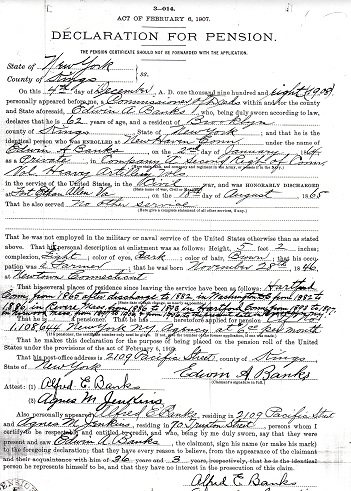 3—014.
ACT OF FEBRUARY 6, 1907.
DECLARATION FOR PENSION.
THE PENSION CERTIFICATE SHOULD NOT BE FORWARDED WITH THE APPLICATION.
State of New York
County of Kings } ss.
On this 4th day of December, A. D. one thousand nine hundred and eight 1908
personally appeared before me, a Commissioner of Deeds within and for the county
and State aforesaid, Edwin A Banks, who, being duly sworn according to law,
declares that he is 62 years of age, and a resident of Brooklyn
county of Kings, State of New York; and that he is the
identical person who was ENROLLED at New Haven Conn. under the name of
Edwin A Banks, on the 2nd day of January, 1864
as a Private, in Company A Second Regt of Conn.
Vol. Heavy Artillery Vols.
in the service of the United States, in the Civil war, and was HONORABLY DISCHARGED
at on the day of August, 1865
That he also served No other service
(Here give a complete statement of all other services, if any.)
That he was not employed in the military or naval service of the United States otherwise than as stated
above. That his personal description at enlistment was as follows: Height, 5 feet 2 inches;
complexion, Light; color of eyes, Dark; color of hair, Brown; that his occu-
pation was a Farmer; that he was born November 28th, 1846,
at Connecticut
That his several places of residence since leaving the service have been as follows: Hartford
Conn, from 1865 after discharge to 1882 in Washington DC from 1882 to
1886, in Mass from 1886 to 1890 in Hartford Conn from 1890 to
That he is a pensioner. That he has heretofore applied for pension
1,108,644 New York NY, Agency at 6 00 per month
That he makes this declaration for the purpose of being placed on the pension roll of the United
States under the provisions of the act of February 6, 1907.
That his post-office address is 2109 Pacific Street, county of Kings
State of New York
Edwin A Banks
(Claimant's signature in full.)
Attest: (1) Alfred E. Banks
(2) Agnes M. Jenkins
Also personally appeared Alfred E Banks, residing in 2109 Pacific Street
and Agnes M. Jenkins, residing in 70 Street, persons whom I
certify to be respectable and entitled to credit, and who, being by me duly sworn, say that they were
present and saw Edwin A. Banks, the claimant, sign his name (or make his mark)
to the foregoing declaration; that they have every reason to believe, from the appearance of the claimant
and their acquaintance with him of 36 years and 3 years, respectively, that he is the identical
person he represents himself to be, and that they have no interest in the prosecution of this claim.
Alfred E. Banks